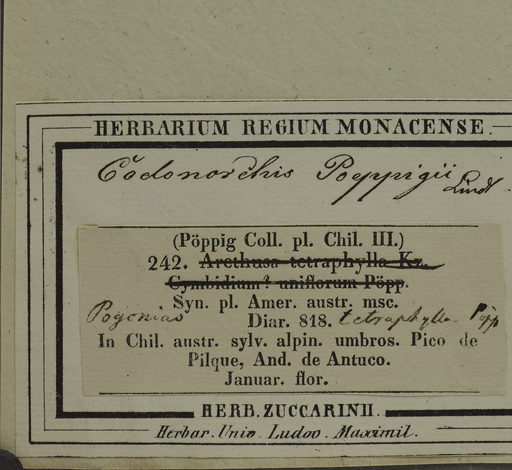 HERBARIUM REGIUM MONACENSE.
Codonorchis Poeppigii Lindl.
(Pöppig Coll. pl. Chil. III.)
242. Arethusa tetraphylla Kz.
Cymbidium? uniflorum Pöpp.
Syn. pl. Amer. austr. msc.
Pogonias Diar. 818. tetraphylla Pöpp
In Chil. austr. sylv. alpin. umbros. Pico de
Pilque, And. de Antuco.
Januar. flor.
HERB. ZUCCARINII.
Herbar. Univ. Ludov. Maximil.